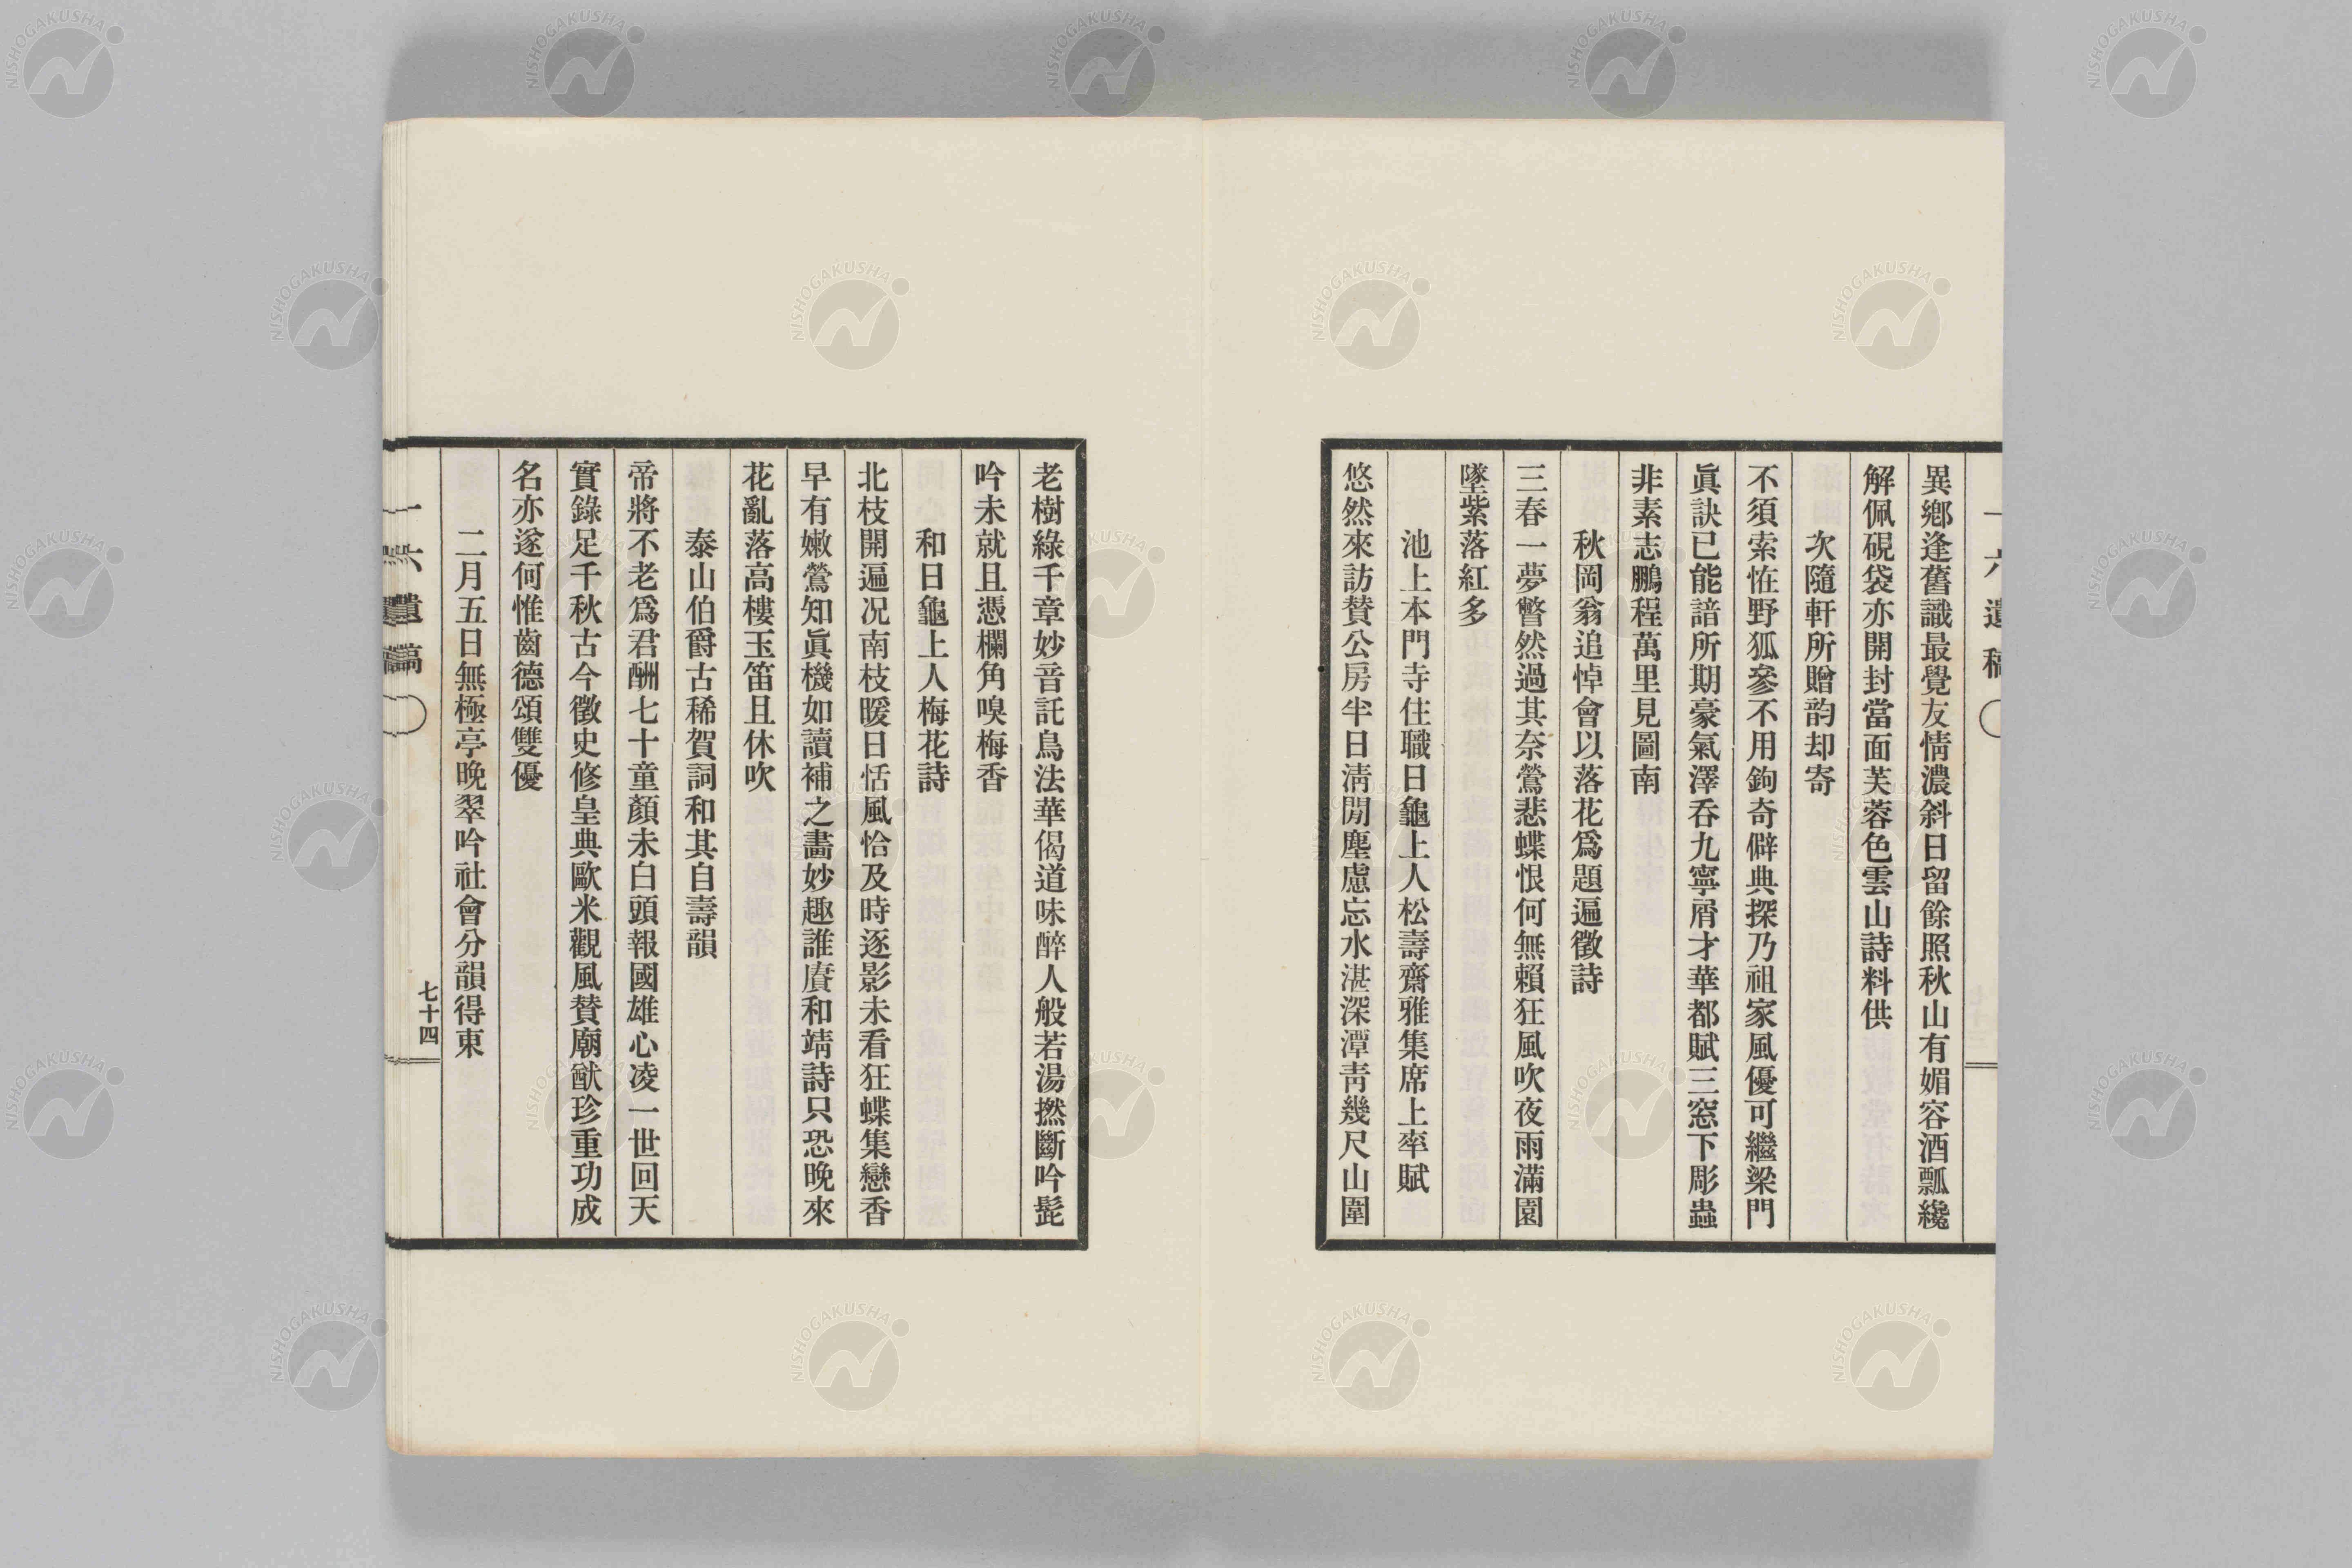 一六遺稿
異鄕逢舊識最覺友情濃斜日留餘照秋山有媚容酒瓢纔
解佩硯袋亦開封當面芙蓉色雲山詩料供
次隨軒所贈韵却寄
不須索恠野狐參不用鉤奇僻典探乃祖家風優可繼梁門
眞訣已能諳所期豪氣澤呑九寧屑才華都賦三窓下彫蟲
非素志鵬程萬里見圖南
秋岡翁追悼會以落花爲題遍徵詩
三春一夢瞥然過其奈鶯悲蝶恨何無賴狂風吹夜雨滿園
墜紫落紅多
池上本門寺住職日龜上人松壽齋雅集席上率賦
悠然來訪賛公房半日淸閒塵慮忘水湛深潭靑幾尺山圍
老樹綠千章妙音託鳥法華偈道味醉人般若湯撚斷吟髭
吟未就且憑欄角嗅梅香
和日龜上人梅花詩
北枝開遍况南枝暖日恬風恰及時逐影未看狂蝶集戀香
早有嫩鶯知眞機如讀補之畵妙趣誰賡和靖詩只恐晩來
花亂落高樓玉笛且休吹
泰山伯爵古稀賀詞和其自壽韻
帝將不老爲君酬七十童顏未白頭報國雄心凌一世回天
實錄足千秋古今徵史修皇典歐米觀風賛廟猷珍重功成
名亦遂何惟齒德頌雙優
二月五日無極亭晩翠吟社會分韻得東
一六遺稿
七十四
NISHOGAKUSHA